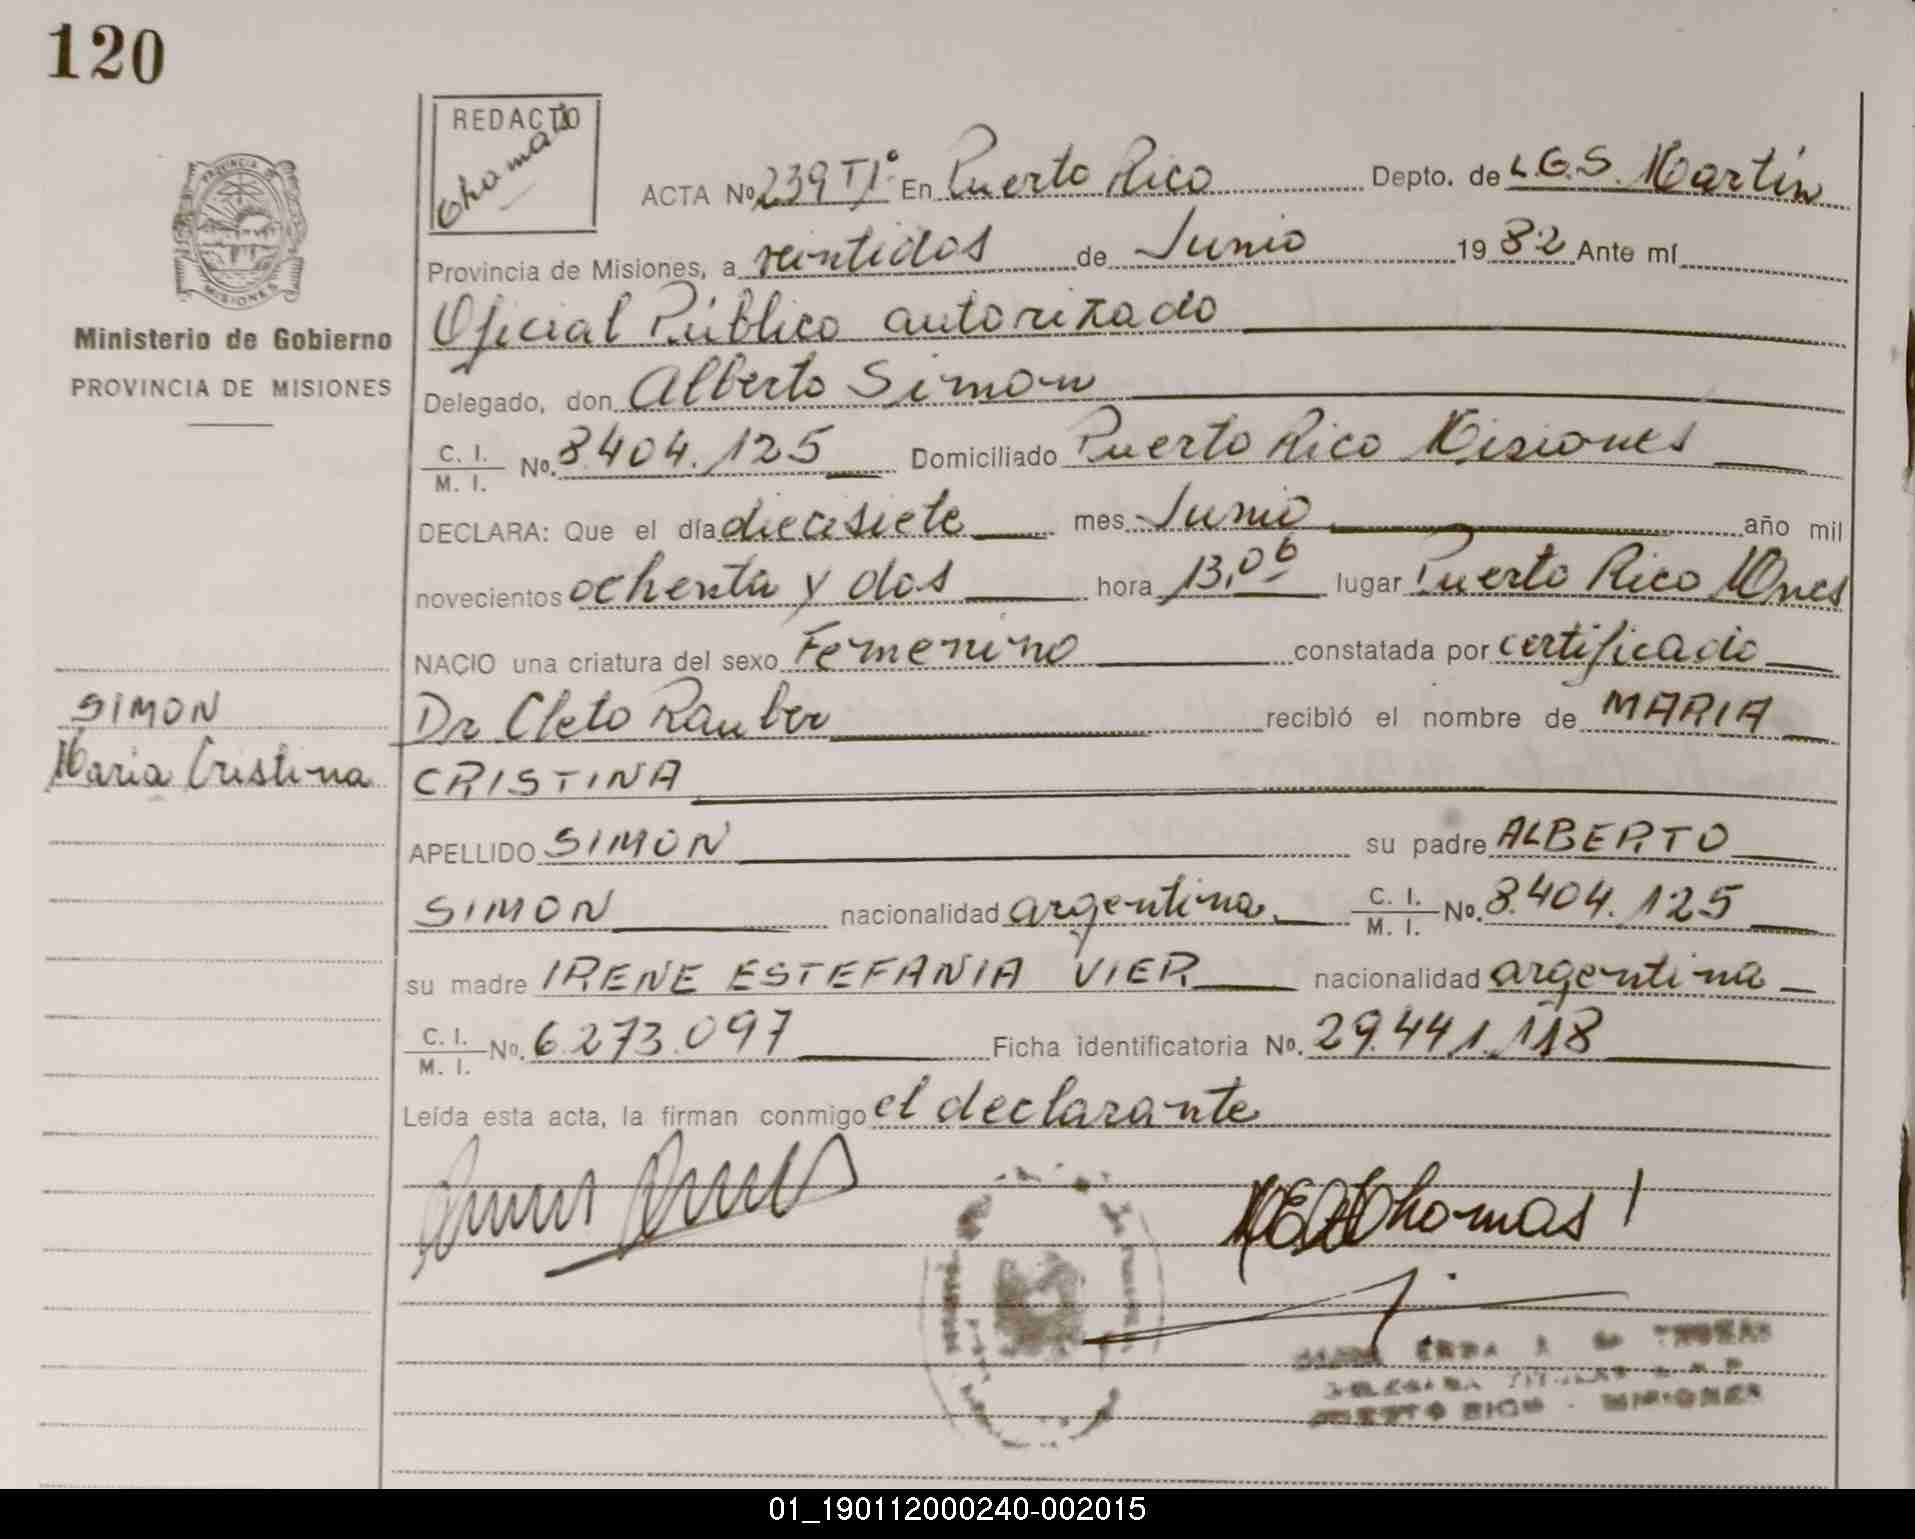 120
REDACTO
Thomas
PROVINCIA DE
MISIONES
Ministerio de Gobierno
PROVINCIA DE MISIONES
ACTA No 239 TIº En Puerto Rico Depto. de L.G.S. Martín
Provincia de Misiones, a veintidos de Junio 1982 Ante mí
Oficial Público autorizado
Delegado, don Alberto Simon
C. I. / M. I. No. 8.404.125 Domiciliado Puerto Rico Misiones
DECLARA: Que el día diecisiete mes Junio año mil
novecientos ochenta y dos hora 13,06 lugar Puerto Rico Mnes
NACIO una criatura del sexo Femenino constatada por certificado
Dr Cleto Rauber recibió el nombre de MARIA
CRISTINA
APELLIDO SIMON su padre ALBERTO
SIMON nacionalidad argentina C. I. / M. I. No. 8.404.125
su madre IRENE ESTEFANIA VIER nacionalidad argentina
C. I. / M. I. No. 6.273.097 Ficha identificatoria No. 29.441.118
Leída esta acta, la firman conmigo el declarante
SIMON
Maria Cristina
Thomas
THOMAS
PUERTO RICO - MISIONES
01_190112000240-002015